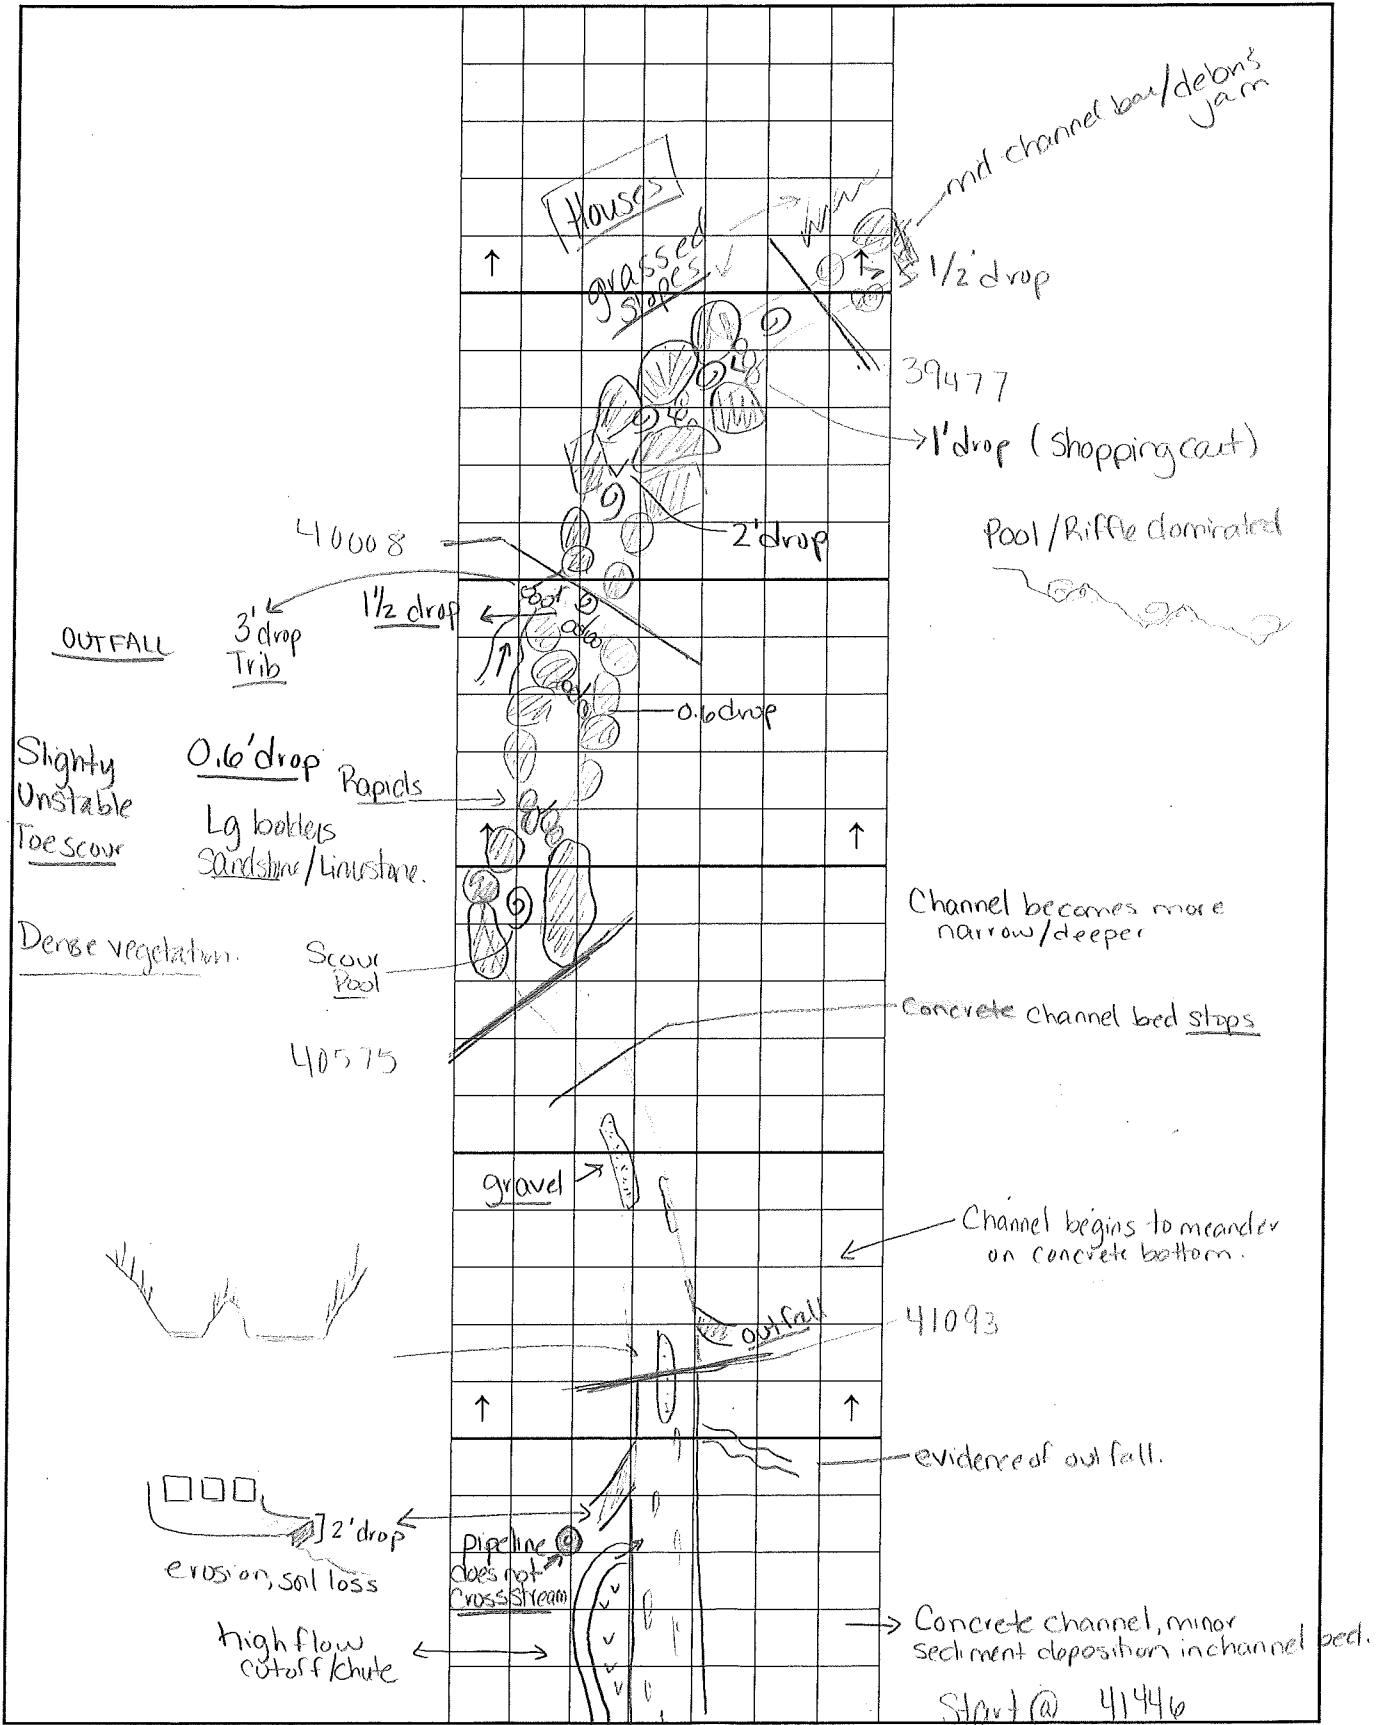 mid channel bar/debris
jam
Houses
grassed
slopes
1/2' drop
39477
1' drop (Shopping cart)
Pool/Riffle dominated
2' drop
40008
1 1/2 drop
3' drop
Trib
OUTFALL
0.6 drop
Slighty
Unstable
Toe scour
0.6' drop
Rapids
Lg bolders
Sandstone/Limestone.
Channel becomes more
narrow/deeper
Dense vegetation.
Scour
Pool
Concrete channel bed stops
40575
gravel
Channel begins to meander
on concrete bottom.
outfall
41093
evidence of outfall.
2' drop
pipeline
does not
Cross stream
erosion, soil loss
high flow
cutoff/chute
Concrete channel, minor
sediment deposition in channel bed.
Start @ 41446